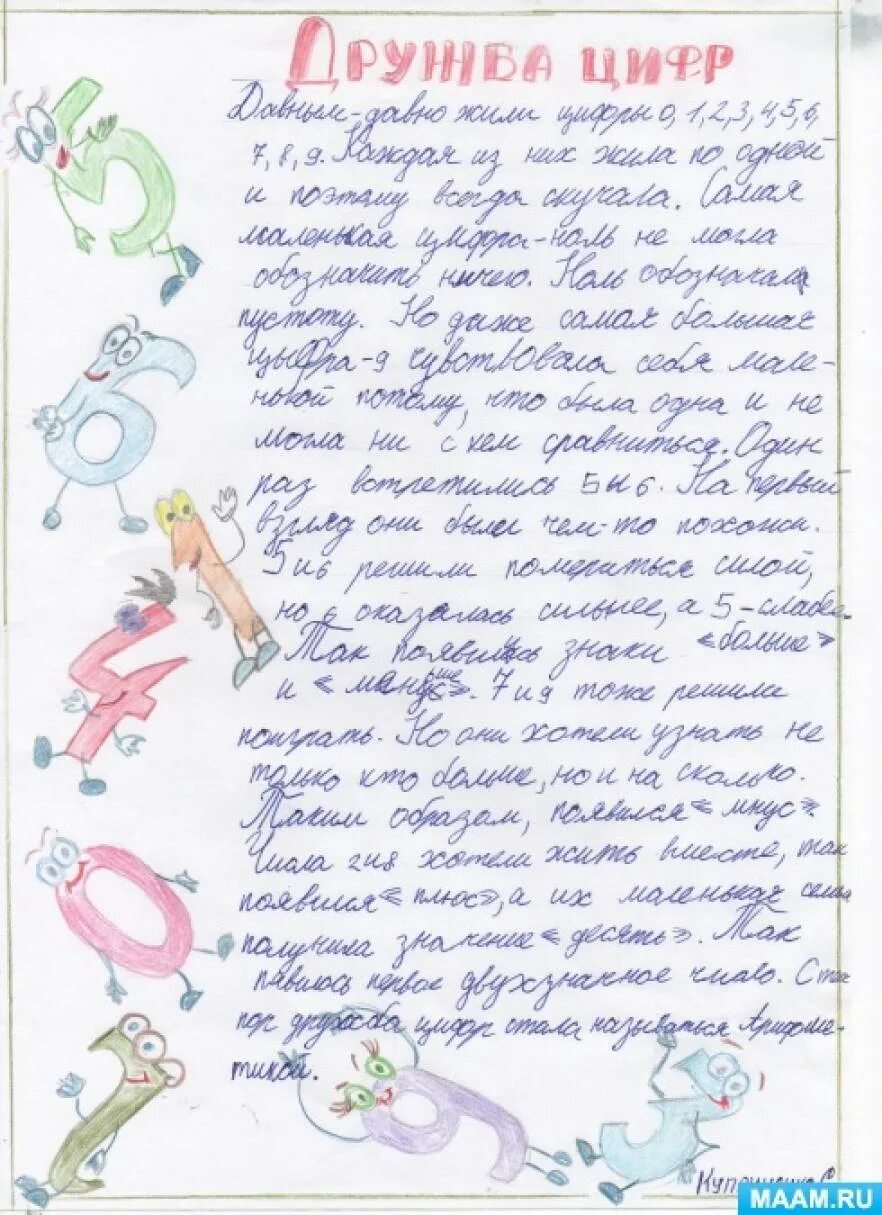 ДРУЖБА ЦИФР
Давным-давно жили цифры 0, 1, 2, 3, 4, 5, 6,
7, 8, 9. Каждая из них жила по одной
и поэтому всегда скучала. Самая
маленькая цифра-ноль не могла
обозначить ничего. Ноль обозначал
пустоту. Но даже самая большая
цыфра-9 чувствовала себя мале-
нькой потому, что была одна и не
могла ни с кем сравниться. Один
раз встретились 5 и 6. На первый
взгляд они были чем-то похожи.
5 и 6 решили помериться силой,
но 6 оказалась сильнее, а 5-слабее.
Так появились знаки «больше»
и «меньше». 7 и 9 тоже решили
поиграть. Но они хотели узнать не
только кто больше, но и на сколько.
Таким образом, появился «мнус».
Числа 2 и 8 хотели жить вместе, так
появился «плюс», а их маленькая семья
получила значение «десять». Так
появилось первое двухзначное число. С тех
пор дружба цифр стала называться Арифме-
тикой.
MAAM.RU